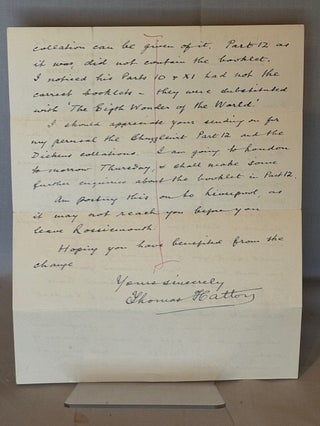 collation can be given of it. Part 12 as
it was, did not contain the booklet.
I noticed his Parts 10 & XI had not the
correct booklets - they were substituted
with 'The Eigth Wonder of the World'
I should appreciate your sending on for
my perusal the Chuzzlewit Part 12 and the
Dickens collations. I am going to London
to morrow Thursday, & shall make some
further enquiries about the booklet in Part 12.
Am posting this on to Liverpool, as
it may not reach you before you
leave Rossiemouth.
Hoping you have benefited from the
change
Yours sincerely
Thomas Hatton